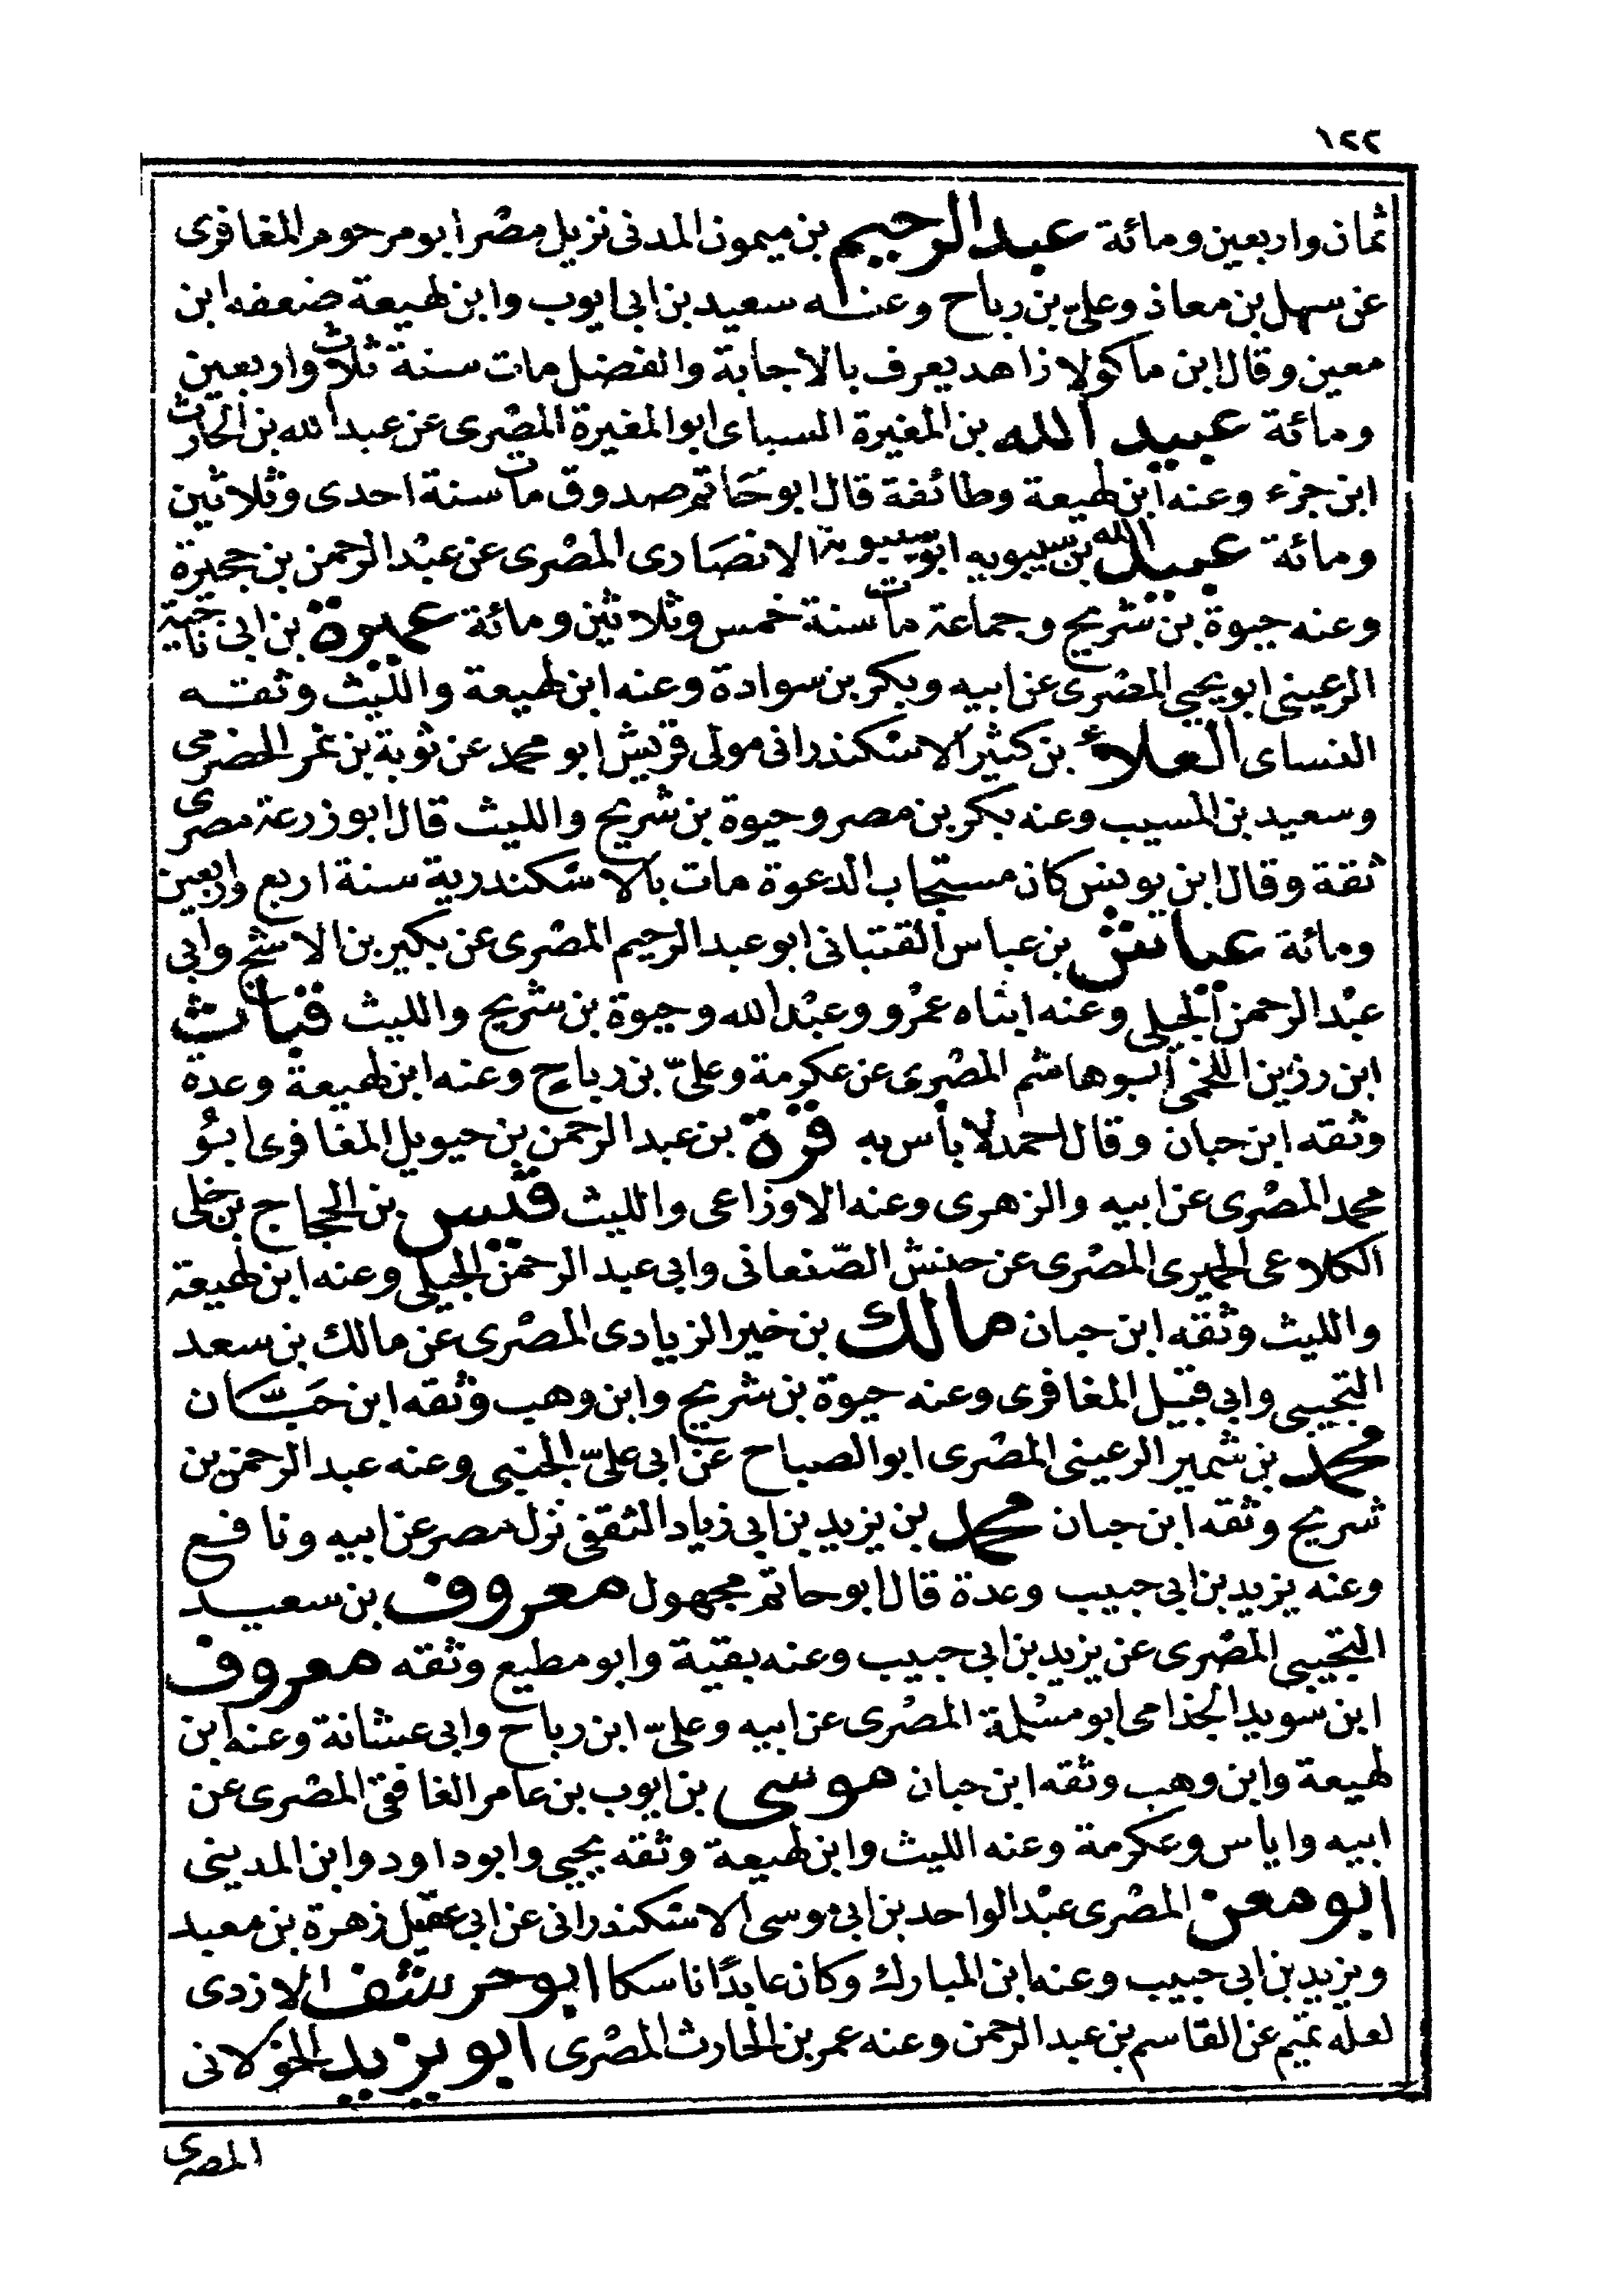 ١٢٢
ثمان واربعين ومائة عبد الرحيم بن ميمون المدنى نزيل مصر ابو مرحوم المغافرى
عن سهل بن معاذ وعلىّ بن رباح وعنه سعيد بن ابى ايوب وابن لهيعة ضعفه ابن
معين وقال ابن ماكولا زاهد يعرف بالاجابة والفضل مات سنة ثلاث واربعين
ومائة عبيد الله بن المغيرة السباى ابو المغيرة المصرى عن عبد الله بن الحارث
ابن جزء وعنه ابن لهيعة وطائفة قال ابو حَاتم صدوق مات سنة احدى وثلاثين
ومائة عبد الله بن سيبويه ابو سيبوية الانصَارى المصْرى عن عبْد الرحمن بن حجيرة
وعنه حيوة بن شريح وجماعة مات سنة خمس وثلاثين ومائة عميرة بن ابى ناجية
الرعينى ابو يحيى المصْرى عن ابيه وبكر بن سوادة وعنه ابن لهيعة والليْث وثقه
النساى العلاء بن كثير الاسْكندرانى مولى قريش ابو محمد عن ثوبة بن نمر الحضرمى
وسعيد بن المسيب وعنه بكر بن مصر وحيوة بن شريح والليث قال ابو زرعة مصرى
ثقة وقال ابن يونس كان مستجاب الدعوة مات بالاسْكندرية سنة اربع واربعين
ومائة عياش بن عباس القتبانى ابو عبد الرحيم المصْرى عن بكير بن الاشج وابى
عبْد الرحمن الجبلى وعنه ابناه عمْرو وعبْد الله وحيوة بن شريح والليث قباث
ابن رزين اللخمى ابو هاشم المصْرى عن عكرمة وعلىّ بن رباح وعنه ابن لهيعة وعدة
وثقه ابن حبان وقال احمد لا بأس به قرة بن عبد الرحمن بن حيويل المغافرى ابو
محمد المصْرى عن ابيه والزهرى وعنه الاوزاعى والليث قيس بن الحجاج بن خلى
الكلاعى الحميرى المصْرى عن حنش الصّنعانى وابى عبد الرحمن الجبلى وعنه ابن لهيعة
والليث وثقه ابن حبان مالك بن خير الزيادى المصْرى عن مالك بن سعد
التجيبى وابى قبيل المغافرى وعنه حيوة بن شريح وابن وهب وثقه ابن حَبّان
محمد بن شمير الرعينى المصْرى ابو الصباح عن ابى علىّ الجنبى وعنه عبد الرحمن بن
شريح وثقه ابن حبان محمد بن يزيد بن ابى زياد الثقفى نزل مصر عن ابيه ونافع
وعنه يزيد بن ابى حبيب وعدة قال ابو حاتم مجهول معروف بن سعيد
التجيبى المصْرى عن يزيد بن ابى حبيب وعنه بقية وابو مطيع وثقه معروف
ابن سويد الجذامى ابو مسْلمة المصْرى عن ابيه وعلىّ ابن رباح وابى عشانة وعنه ابن
لهيعة وابن وهب وثقه ابن حبان موسى بن ايوب بن عامر الغافقى المصْرى عن
ابيه واياس وعكرمة وعنه الليث وابن لهيعة وثقه يحيى وابو داود وابن المدينى
ابو معن المصْرى عبْد الواحد بن ابى موسى الاسْكندرانى عن ابى عقيل زهرة بن معبد
ويزيد بن ابى حبيب وعنه ابن المبارك وكان عابدًا ناسكا ابو حرشف الازدى
لعله تميم عن القاسم بن عبد الرحمن وعنه عمر بن الحارث المصْرى ابو يزيد الخولانى
المصرى